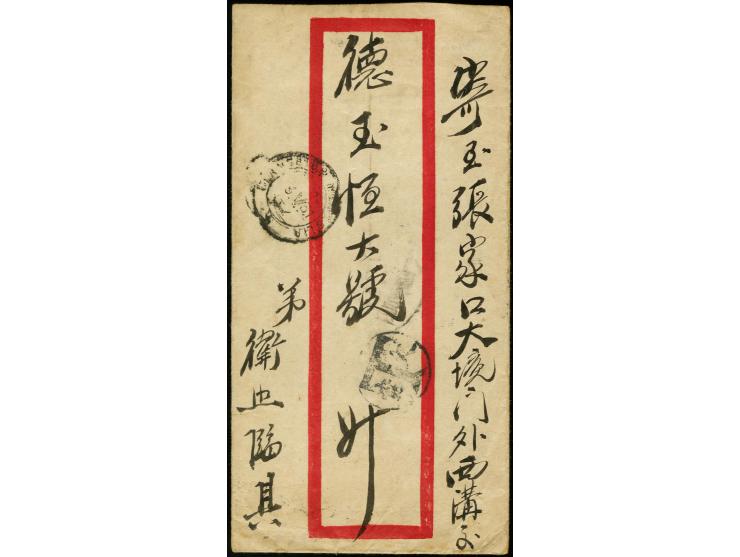 寄至張家口大境门外西溝交
德玉恒大號 升
弟衛止臨具